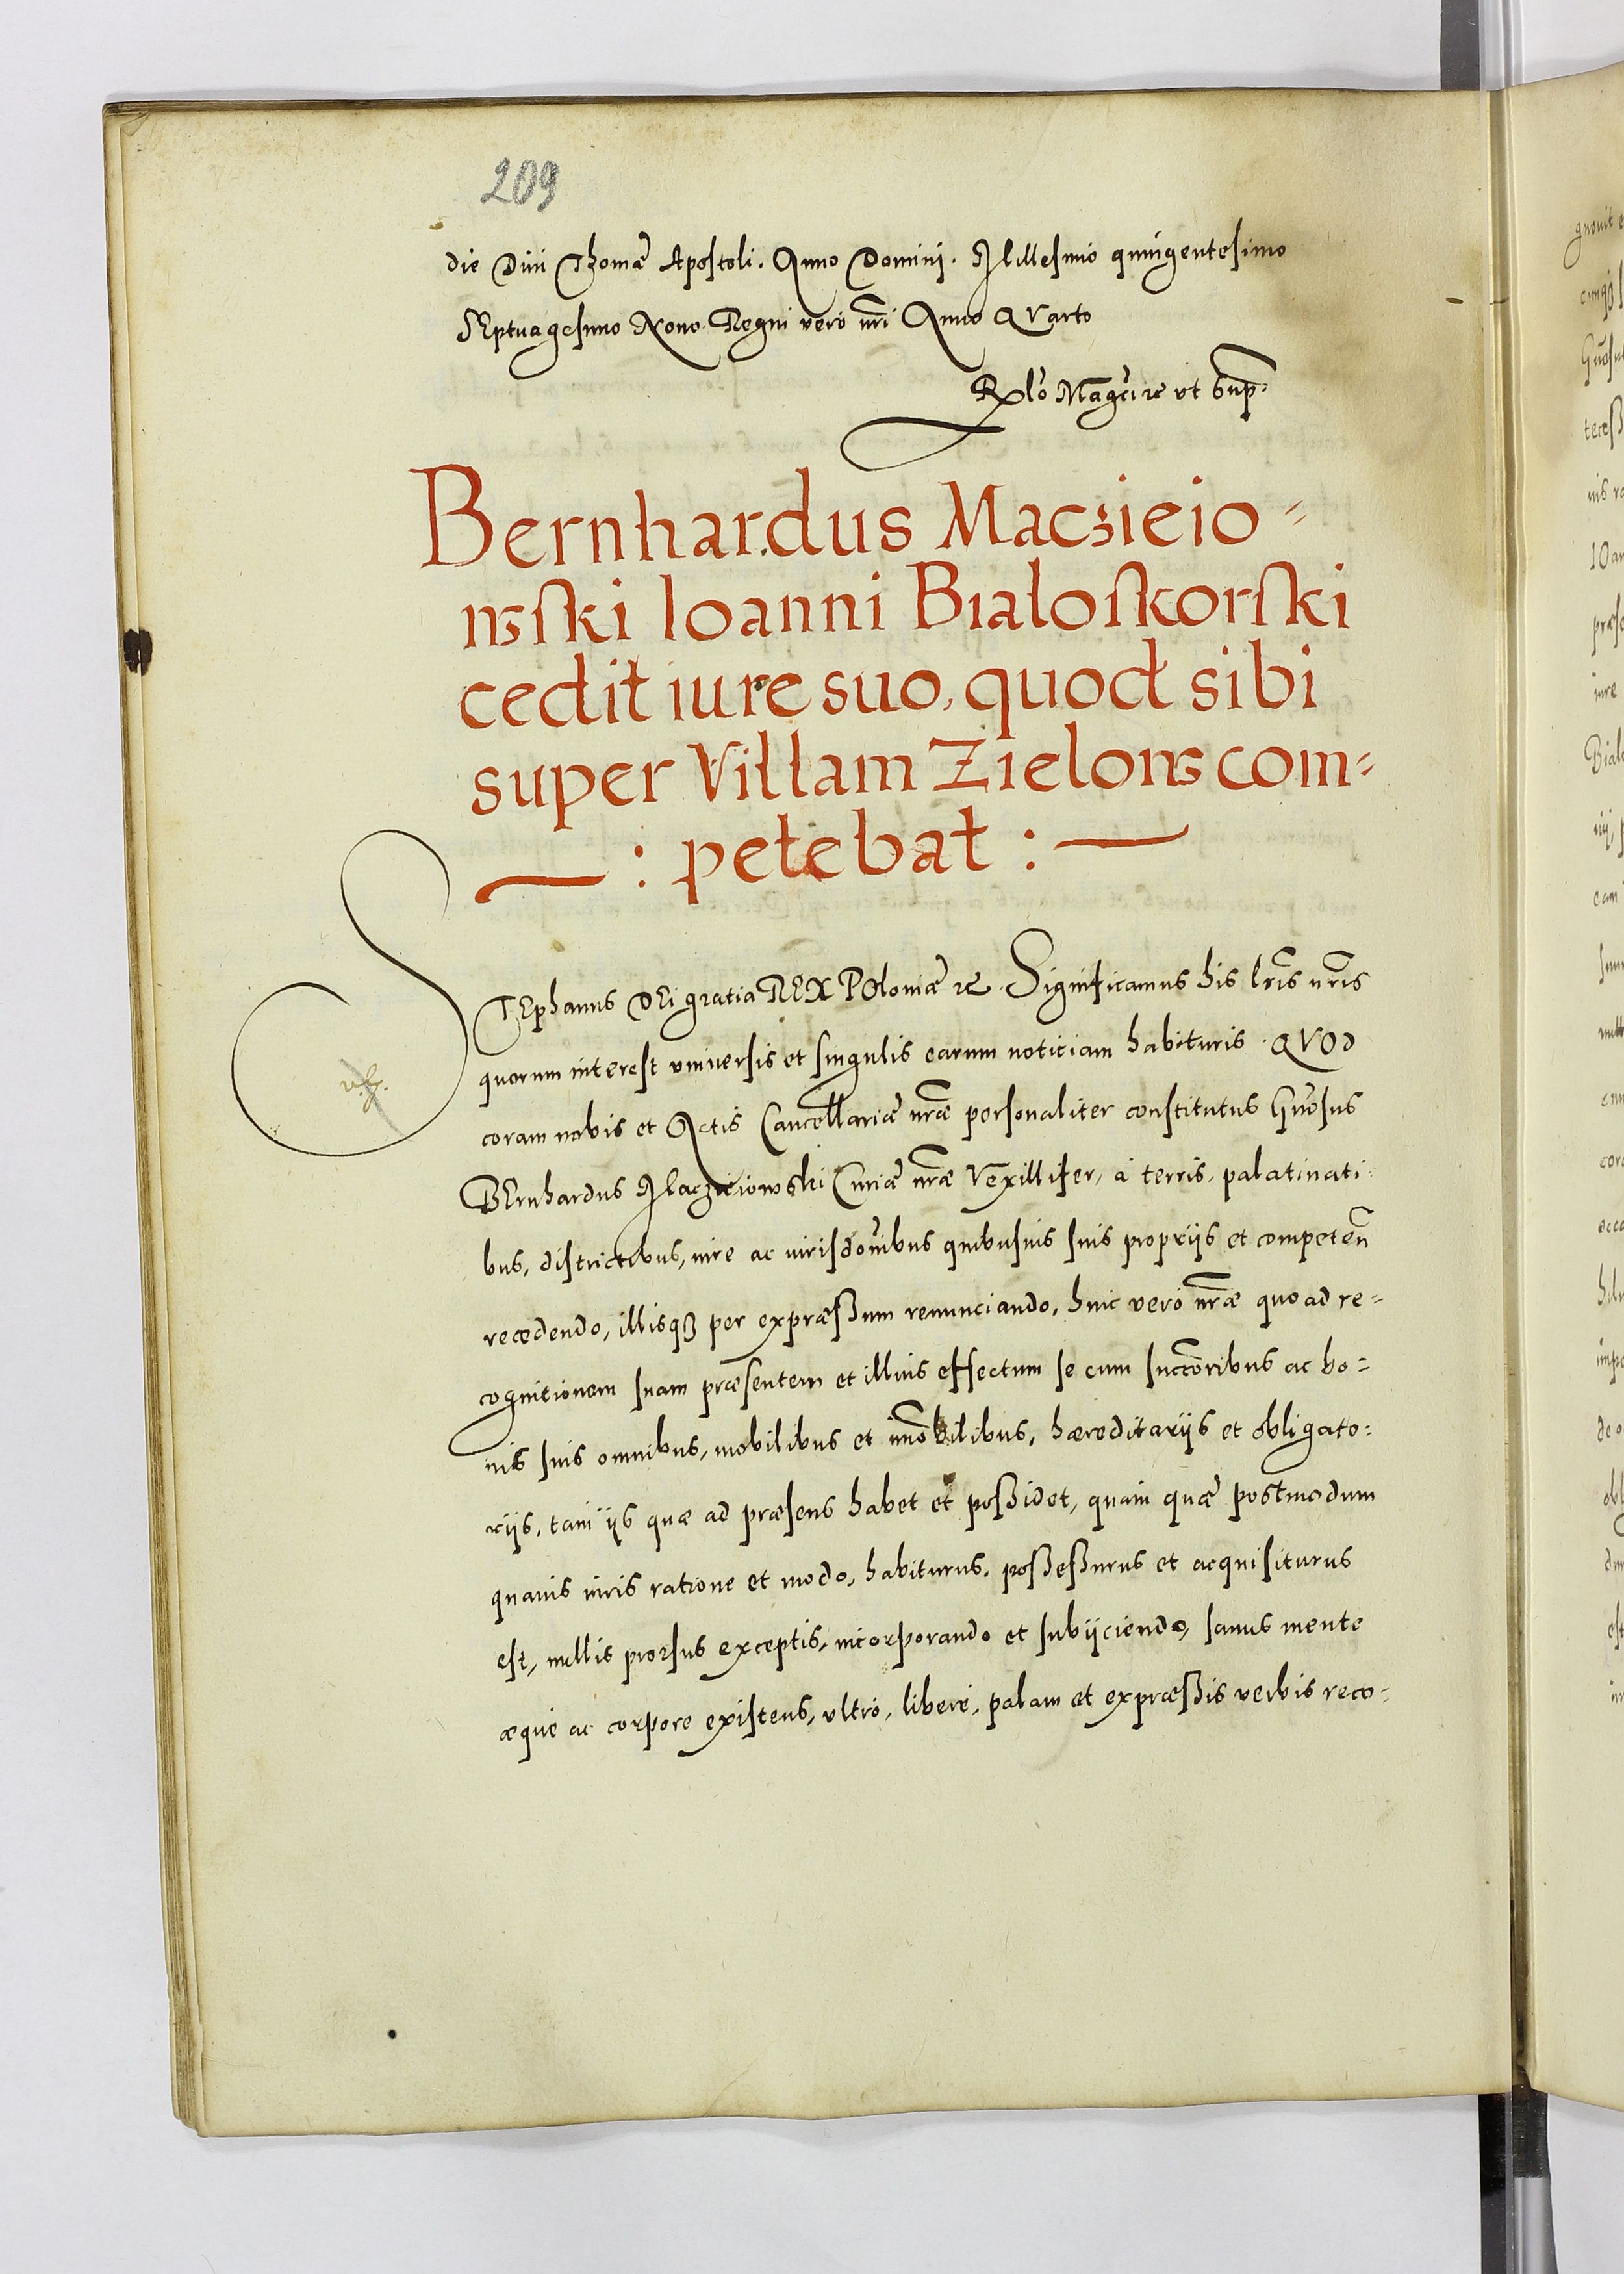 209
die Diui Thomæ Apostoli. Anno Domini. Millesimo quingentesimo
SEptuagesimo Nono. Regni vero nrĩ Anno QVarto
Rlõ Magci ꝛc vt sup.
Bernhardus Maczieio=
wski Ioanni Bialoskorski
cedit iure suo, quod sibi
super Villam Zielow com=
: petebat :
STEphanus DEi gratia REX POloniæ ꝛc. Significamus his lrĩs nrĩs
quorum interest vniuersis et singulis earum noticiam habituris. QVOd
coram nobis et Actis Cancellariæ nrãe personaliter constitutus Gnõsus
BErnhardus Maczieiowski Curiæ nrãe Vexillifer, à terris, palatinati
bus, districtibus, iure ac iurisdõnibus quibusuis suis proprijs et competeñ
recedendo, illisqȝ per expræßum renunciando, huic verò nrãe quoad re=
cognitionem suam præsentem et illius effectum se cum succõribus ac bo=
nis suis omnibus, mobilibus et imõbilibus, hæreditarijs et obligato=
rijs, tam ijs quæ ad præsens habet et poßidet, quàm quæ postmodum
quauis iuris ratione et modo, habiturus, poßeßurus et acquisiturus
est, nullis prorsus exceptis, incorporando et subijciendo, sanus mente
æque ac corpore existens, vltrò, liberè, palam et expræßis verbis reco=